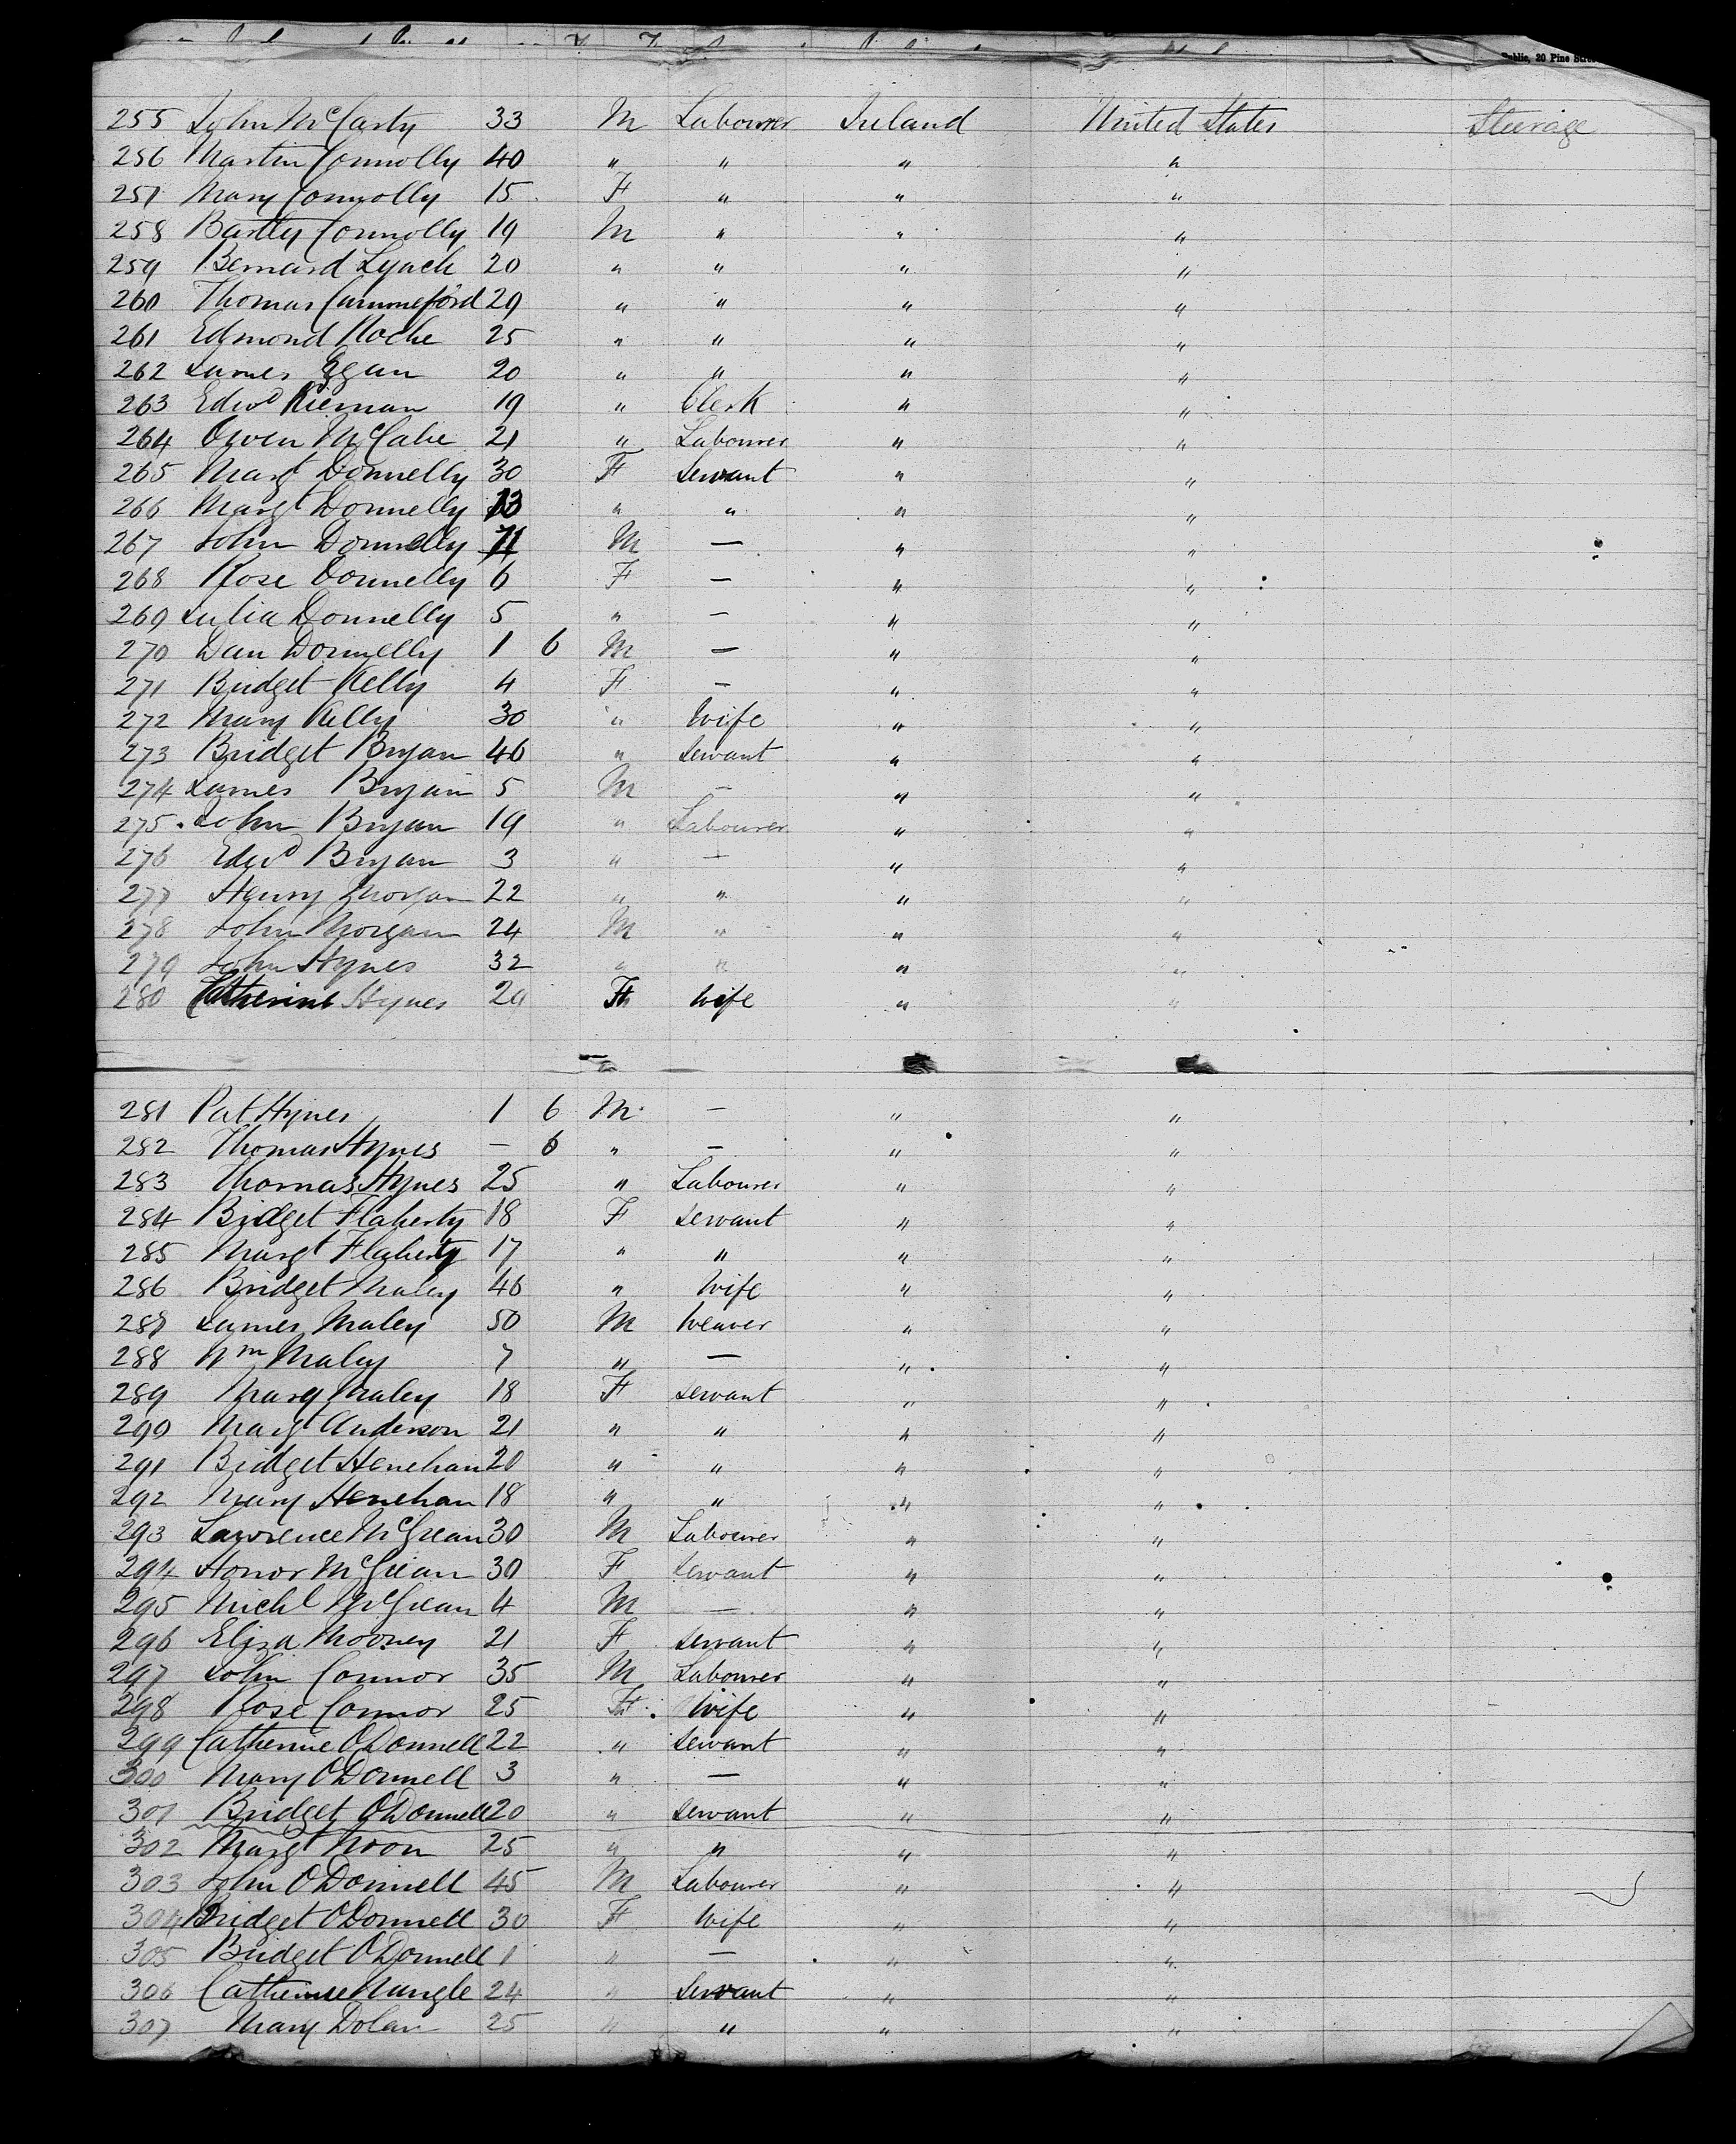 Public, 20 Pine Stre
255 John McCarty 33 M Labourer Ireland United States Steerage
256 Martin Connolly 40 " " " "
257 Mary Connolly 15 F " " "
258 Bartly Connolly 19 M " " "
259 Bernard Lynch 20 " " " "
260 Thomas Cummeford 29 " " " "
261 Edmond Roche 25 " " " "
262 James Egan 20 " " " "
263 Edwd Kiernan 19 " Clerk " "
264 Owen McCabe 21 " Labourer " "
265 Margt Donnelly 30 F Servant " "
266 Margt Donnelly 13 " " " "
267 John Donnelly 11 M — " "
268 Rose Donnelly 6 F — " "
269 Julia Donnelly 5 " — " "
270 Dan Donnelly 1 6 M — " "
271 Bridget Kelly 4 F — " "
272 Mary Kelly 30 " Wife " "
273 Bridget Bryan 46 " Servant " "
274 James Bryan 5 M — " "
275 John Bryan 19 " Labourer " "
276 Edwd Bryan 3 " — " "
277 Henry Morgan 22 " " " "
278 John Morgan 24 M " " "
279 John Hynes 32 " " " "
280 Catherine Hynes 29 F Wife " "
281 Pat Hynes 1 6 M — " "
282 Thomas Hynes — 6 " — " "
283 Thomas Hynes 25 " Labourer " "
284 Bridget Flaherty 18 F Servant " "
285 Margt Flaherty 17 " " " "
286 Bridget Maley 46 " Wife " "
287 James Maley 50 M Weaver " "
288 Wm Maley 7 " — " "
289 Mary Maley 18 F Servant " "
290 Margt Anderson 21 " " " "
291 Bridget Henehan 20 " " " "
292 Mary Henehan 18 " " " "
293 Lawrence McGrean 30 M Labourer " "
294 Honor McGrean 30 F Servant " "
295 Michl McGrean 4 M — " "
296 Eliza Mooney 21 F Servant " "
297 John Connor 35 M Labourer " "
298 Rose Connor 25 F Wife " "
299 Catherine O'Donnell 22 " Servant " "
300 Mary O'Donnell 3 " — " "
301 Bridget O'Donnell 20 " Servant " "
302 Margt Noon 25 " " " "
303 John O'Donnell 45 M Labourer " "
304 Bridget O'Donnell 30 F Wife " "
305 Bridget O'Donnell 1 " — " "
306 Catherine Nangle 24 " Servant " "
307 Mary Dolan 25 " " " "